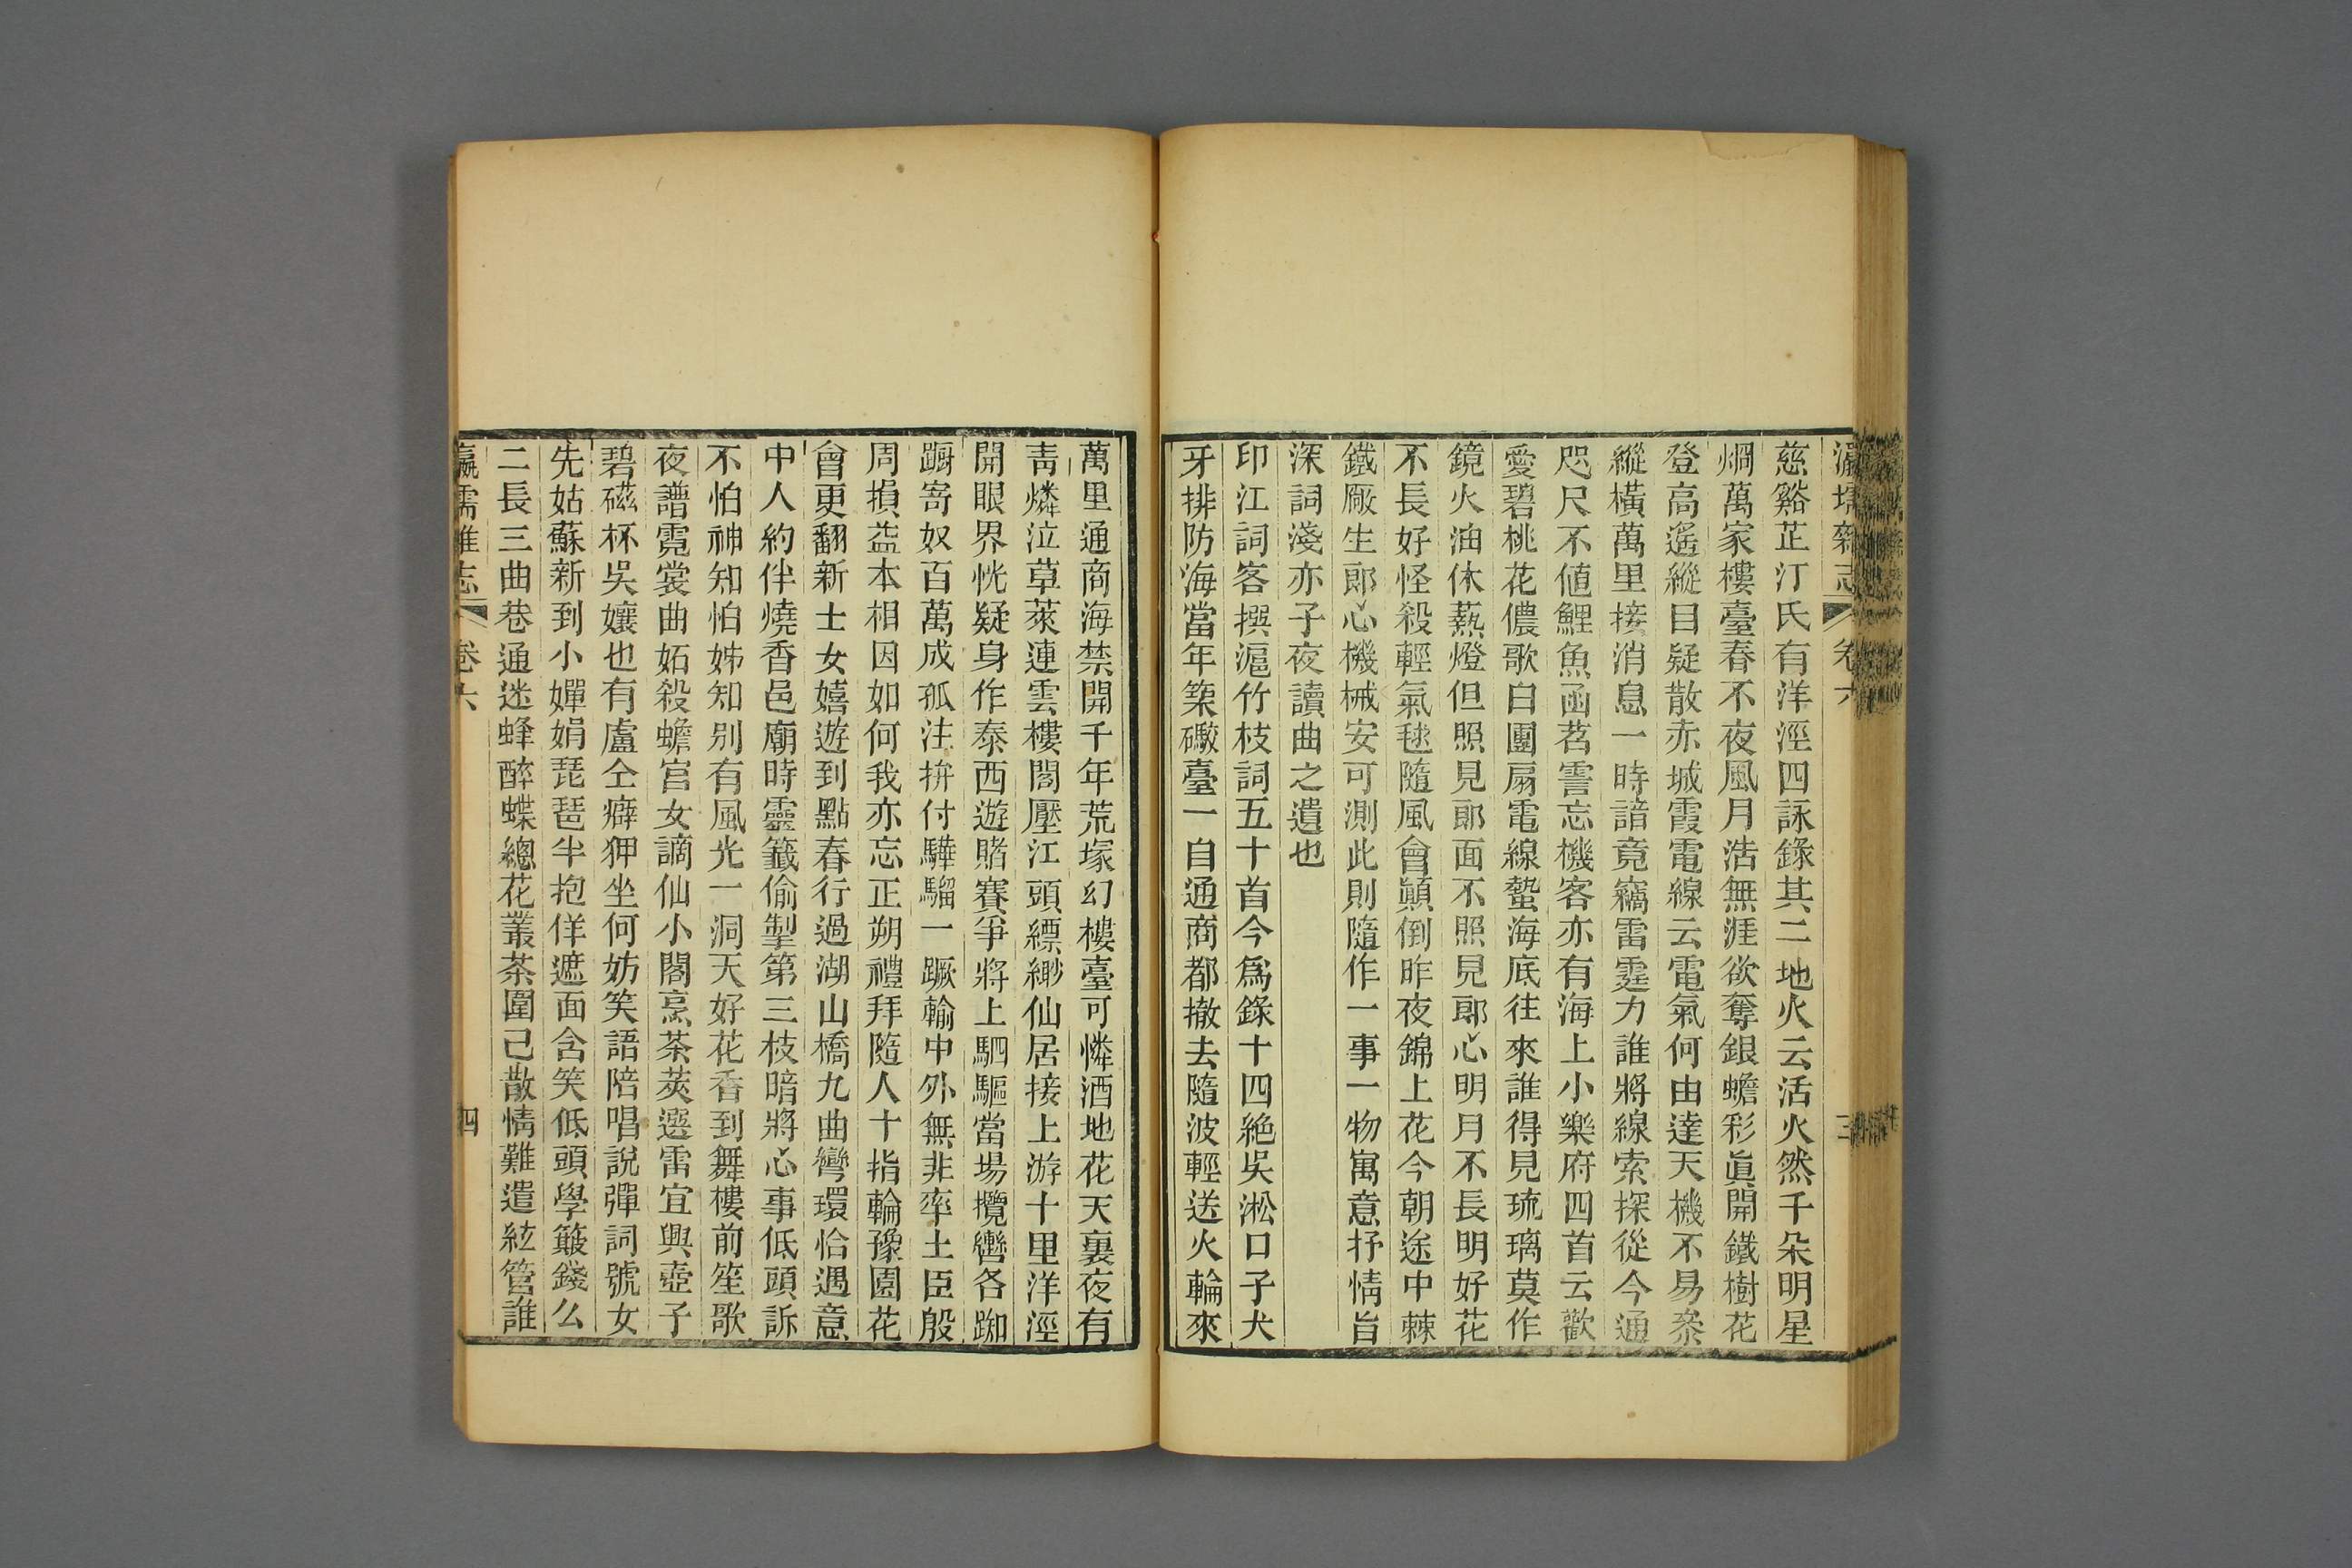 瀛壖雜志 卷六 三
慈谿芷汀氏有洋涇四詠錄其二地火云活火然千朵明星
烱萬家樓臺春不夜風月浩無涯欲奪銀蟾彩眞開鐵樹花
登高遙縱目疑散赤城霞電線云電氣何由達天機不易叅
縱橫萬里接消息一時諳竟竊雷霆力誰將線索探從今通
咫尺不値鯉魚函茗霅忘機客亦有海上小樂府四首云歡
愛碧桃花儂歌白團扇電線蟄海底往來誰得見琉璃莫作
鏡火油休爇燈但照見郞面不照見郞心明月不長明好花
不長好怪殺輕氣毬隨風會顚倒昨夜錦上花今朝途中棘
鐵厰生郞心機械安可測此則隨作一事一物寓意抒情旨
深詞淺亦子夜讀曲之遺也
印江詞客撰滬竹枝詞五十首今爲錄十四絶吳淞口子犬
牙排防海當年築礮臺一自通商都撤去隨波輕送火輪來
萬里通商海禁開千年荒塚幻樓臺可憐酒地花天裏夜有
靑燐泣草萊連雲樓閣壓江頭縹緲仙居接上游十里洋涇
開眼界恍疑身作泰西遊賭賽爭將上駟驅當場攬轡各踟
躕寄奴百萬成孤注拚付驊騮一蹶輸中外無非率土臣殷
周損益本相因如何我亦忘正朔禮拜隨人十指輪豫園花
會更翻新士女嬉遊到點春行過湖山橋九曲彎環恰遇意
中人約伴燒香邑廟時靈籤偷掣第三枝暗將心事低頭訴
不怕神知怕姊知别有風光一洞天好花香到舞樓前笙歌
夜譜霓裳曲妬殺蟾宮女謫仙小閣烹茶莢選雷宜興壺子
碧磁杯吳孃也有盧仝癖狎坐何妨笑語陪唱說彈詞號女
先姑蘇新到小嬋娟琵琶半抱佯遮面含笑低頭學簸錢么
二長三曲巷通迷蜂醉蝶總花叢茶圍已散情難遣絃管誰
瀛壖雜志 卷六 四